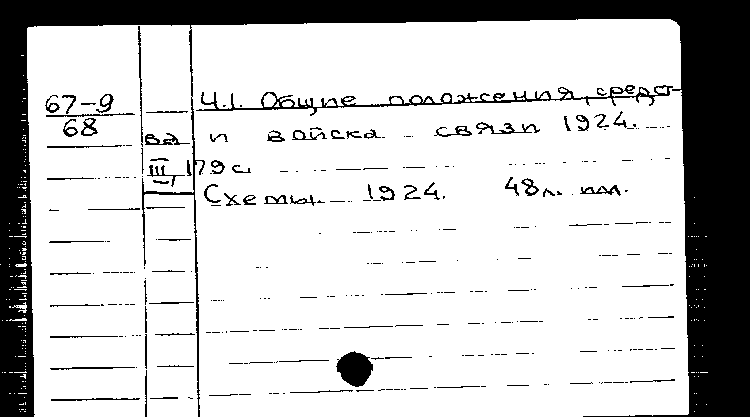 67-9
68
Ч.I. Общие положения, средст-
ва и войска связи 1924.
III, 179 с.
Схемы. 1924. 48 л. илл.